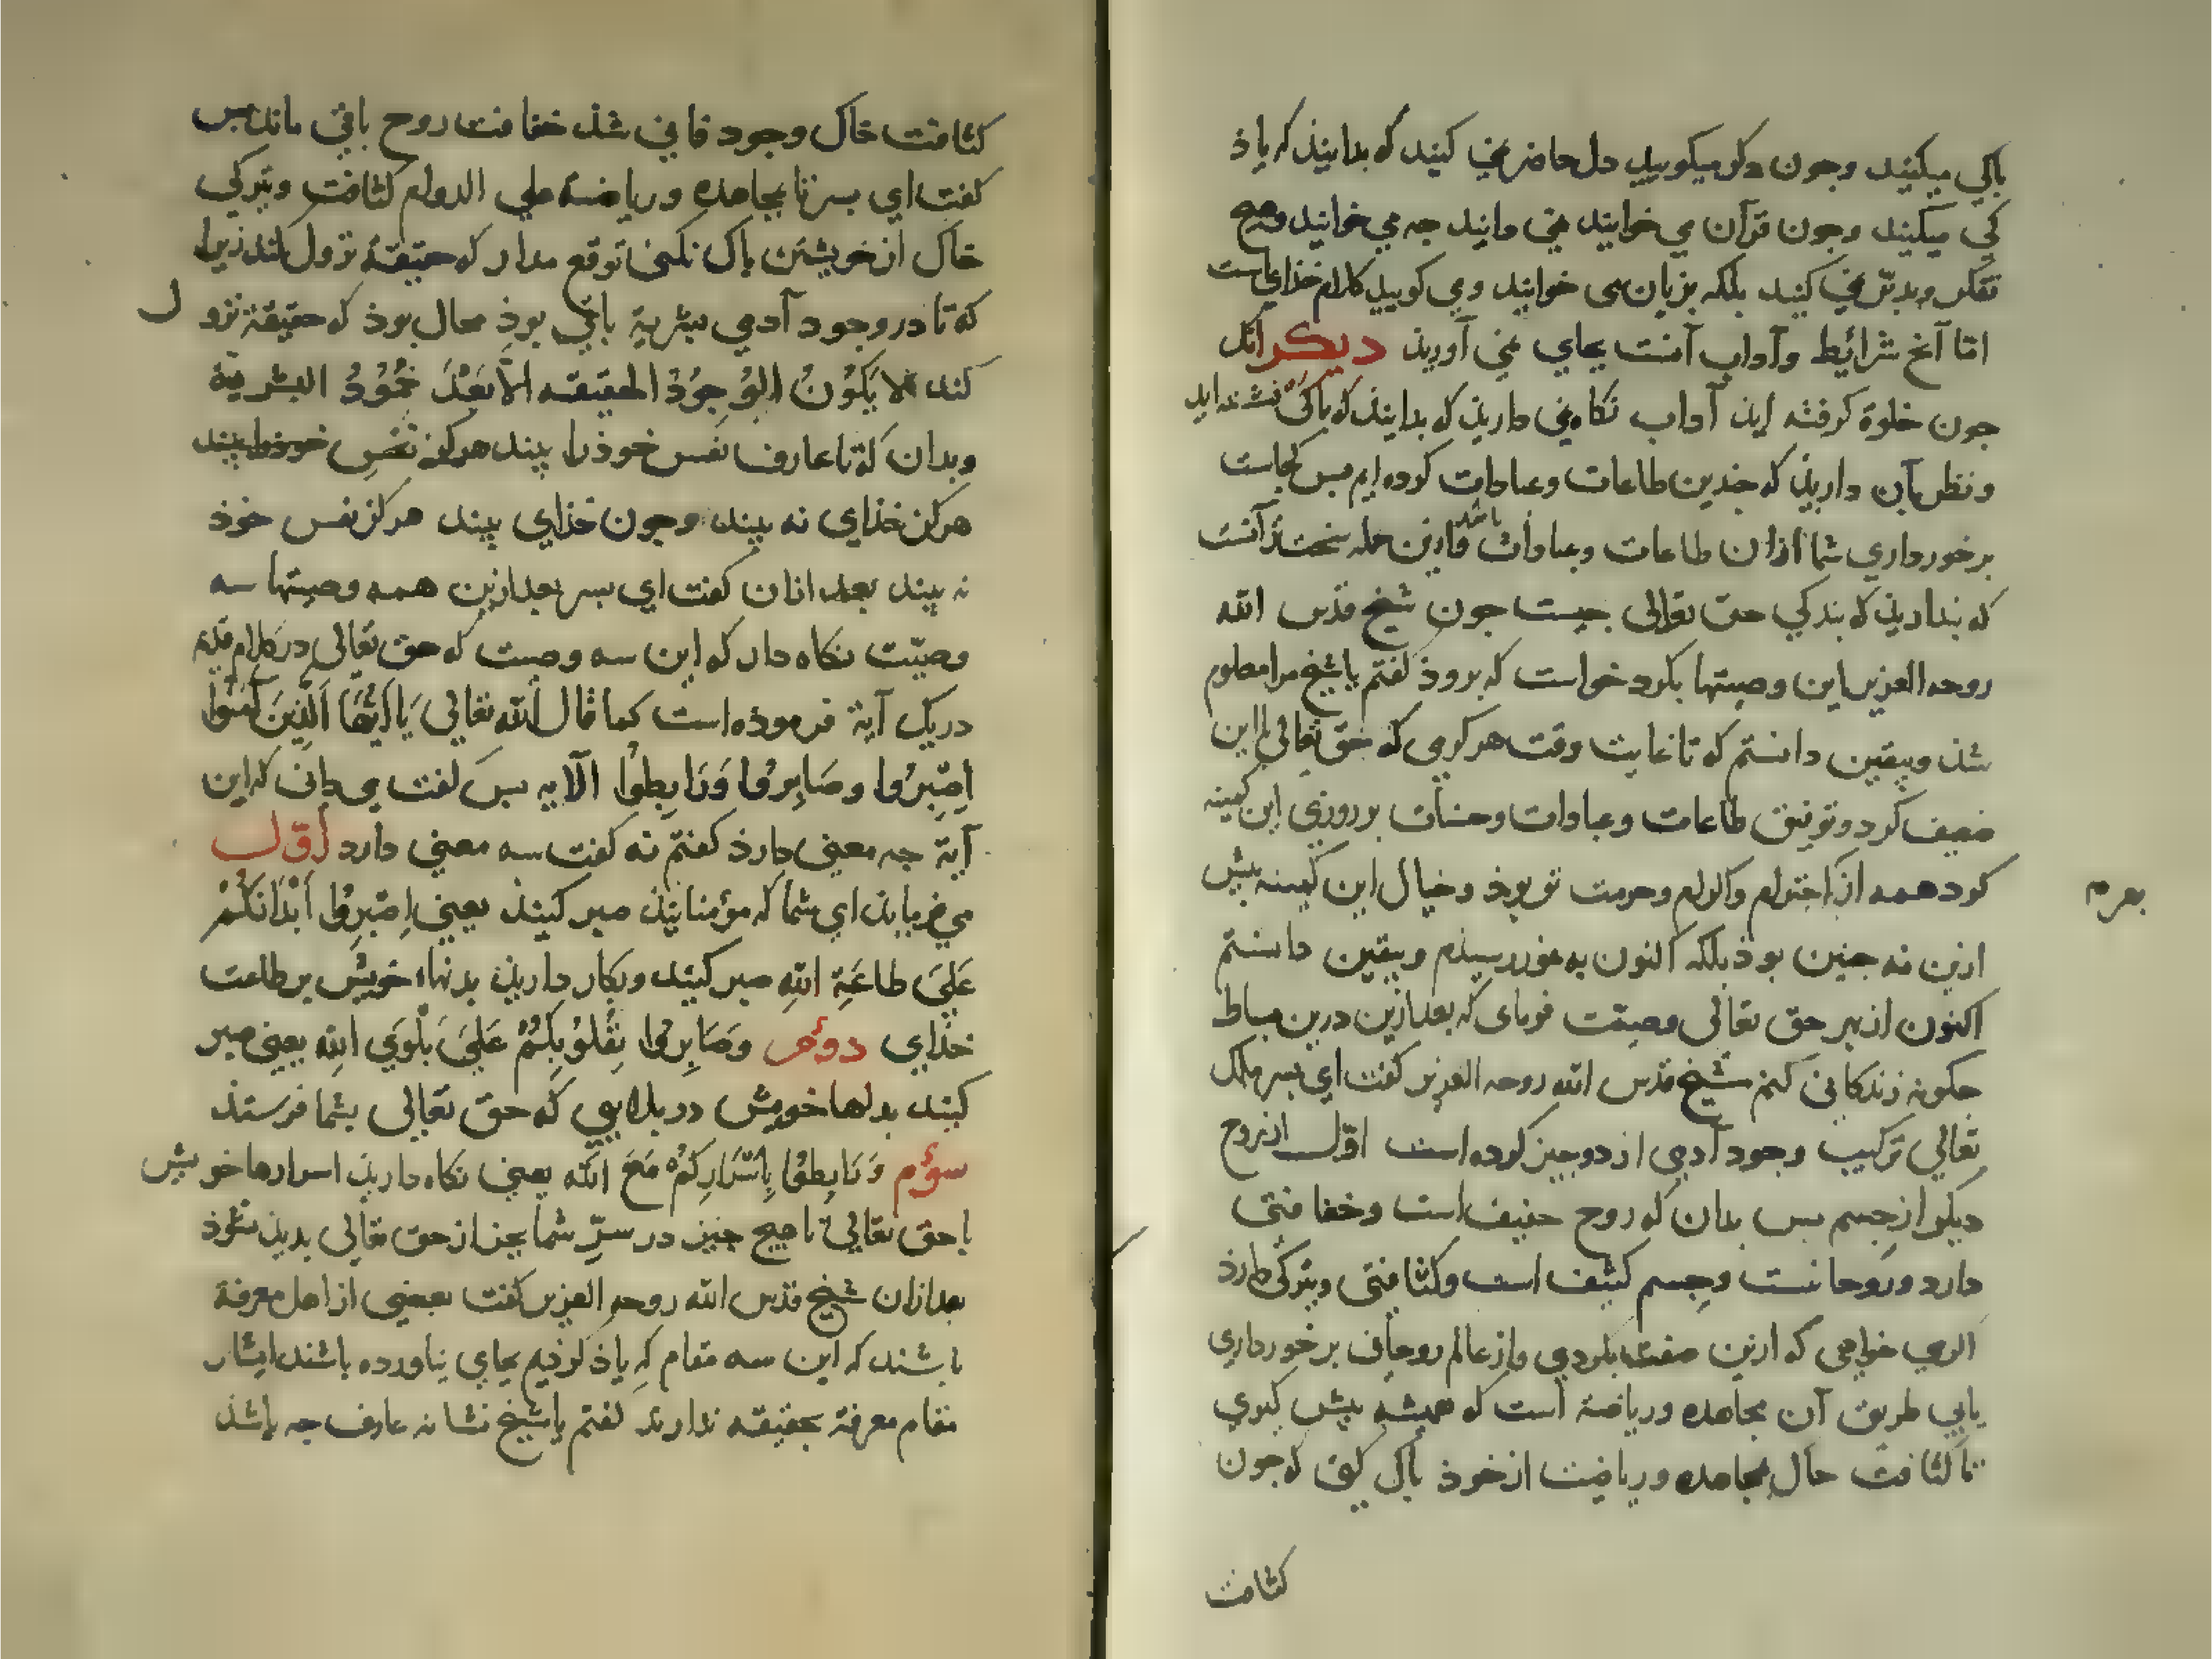 پاکی میکنید وجون ذکر میکویید دل حاضر نمی کنید که بدانیذ که یاذ
کی میکنید وجون قرآن می خوانید نمی دانید جه می خوانید وهیج
تفکر وتدبّر نمی کنید بلکه بزبان می خوانید ومی کویید کلام خذای است
امّا آنج شرائط وآداب آنست بجای نمی آورید دیکر آنک
جون خلوة کرفته اید آداب نکاه نمی دارید که بدانیذ که باکی نشسته اید
ونظر بآن دارید که جندین طاعات وعبادات کرده ایم پس کجاست
برخورداری شما ازان طاعات وعبادات باشد وازین جمله سخت تر آنست
که ندارید که بندکی حق تعالی جیست جون شیخ قدس الله
روحه العزیز این وصیتها بکرد خواست که بروذ کفتم یا شیخ مرا معلوم
شذ وبیقین دانستم که تا غایت وقت هر کرمی که حق تعالی با این
ضعیف کرد وتوفیق طاعات وعبادات وحسنات بر روزی این کمینه
کرد همه از احترام واکرام وحرمت تو بوذ وخیال این کمینه پیش
ازین نه جنین بوذ بلکه اکنون به غور رسیذم وبیقین دانستم
اکنون از بهر حق تعالی وصیت فرمای که بعد ازین درین بساط
جکونه زندکانی کنم شیخ قدس الله روحه العزیز کفت ای پسر ملک
تعالی ترکیب وجود آدمی از دو جیز کرده است اوّل از روح
دیکر از جسم پس بدان که روح خفیف است وخفافتی
دارد وروحانیست وجسم کثیف است وکثافتی وتیرکی دارذ
اکر می خواهی که ازین صفت بکردی واز عالم روحانی برخورداری
یابی طریق آن مجاهده وریاضة است که همیشه پیش کیری
تا کثافت خاک بمجاهده وریاضت از خوذ پاک کنی که جون
کثافت
بعرم
کثافت خاک وجود فانی شذ خفافت روح باقی ماند پس
کفت ای پسر تا بمجاهده وریاضة علی الدوام کثافت وتیرکی
خاک از خویشتن پاک نکنی توقع مدار که حقیقة نزول کند زیرا
که تا در وجود آدمی بشریة باقی بوذ محال بوذ که حقیقة نزول
کند لا یَکُوْنُ الوُجُوْدُ الحقیقه الّا بَعْدَ خُمُوْدُ البشریة
وبدان که تا عارف نفس خوذ را بیند هرکز نفس خوذ را بیند
هرکز خذای نه بیند وجون خذای بیند هرکز نفس خوذ
نه بیند بعد ازان کفت ای پسر بعد ازین همه وصیتها سه
وصیّت نکاه دار که این سه وصیت که حق تعالی در کلام قدیم
در یک آیة فرموذه است کما قال الله تعالی یَا اَیُّهَا الَّذِینَ آمَنُوا
اِصْبِرُوا وصَابِرُوا وَرَابِطُوا الآیه پس کفت می دانی که این
آیة جه معنی دارذ کفتم نه کفت سه معنی دارد اَوّل
می فرماید ای شما که مؤمنانید صبر کنید یعنی اِصْبِرُوا اَبْدَانَکُمْ
عَلَی طاعَةِ اللهِ صبر کنید وبکار دارید بدنهاء خویش بر طاعت
خذای دوم وَصَابِرُوا بِقُلُوْبِکُمْ عَلَی بَلْوَی الله یعنی صبر
کنید بدلها خویش در بلایی که حق تعالی بشما فرستذ
سوم وَرَابِطُوا بِاَسْرَارِکُمْ مَعَ الله یعنی نکاه دارید اسرارها خویش
با حق تعالی تا هیج جیز در سرِّ شما بجز از حق تعالی بدید نشوذ
بعد ازان شیخ قدس الله روحه العزیز کفت بعضی از اهل معرفة
باشند که این سه مقام که یاذ کردیم بجای نیاورده باشند ایشان
مقام معرفة بحقیقه ندارند کفتم یا شیخ نشانه عارف جه باشذ